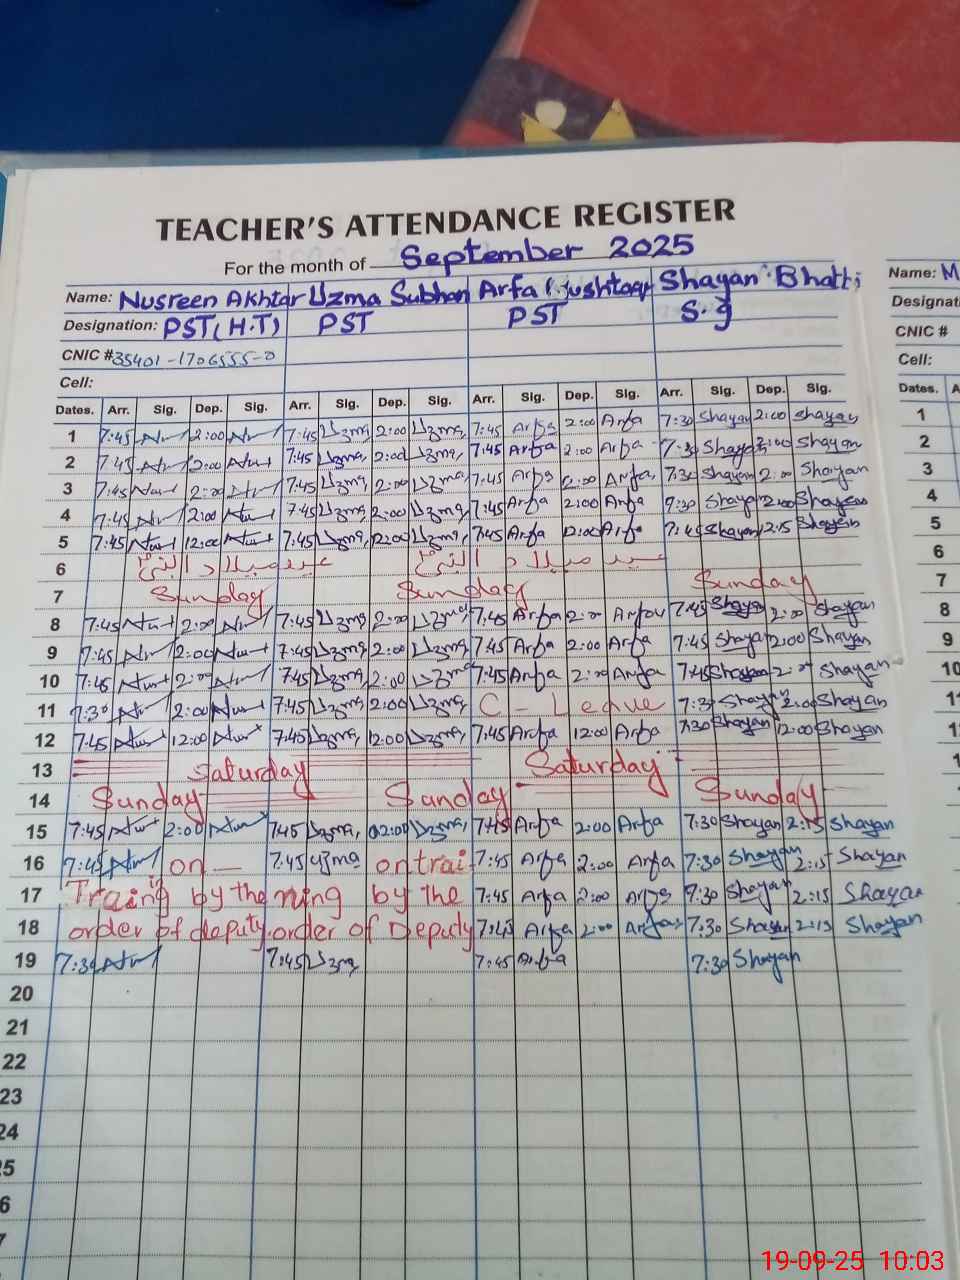 TEACHER'S ATTENDANCE REGISTER
For the month of September 2025
Name: Nusreen Akhtar Uzma Subhan Arfa Mushtaq Shayan Bhatti
Name: M
Designation: PST(H.T) PST PST S.g
Designati
CNIC #35401-1706555-0
CNIC #
Cell:
Cell:
Dates. Arr. Sig. Dep. Sig. Arr. Sig. Dep. Sig. Arr. Sig. Dep. Sig. Arr. Sig. Dep. Sig.
Dates. A
1 7:45 2:00 7:45 Uzma, 2:00 Uzma, 7:45 Arfa 2:00 Arfa 7:30 Shayan 2:00 Shayan 1
2 7:45 2:00 7:45 Uzma, 2:00 Uzma, 7:45 Arfa 2:00 Arfa 7:30 Shayan 2:00 Shayan 2
3 7:45 2:00 7:45 Uzma, 2:00 Uzma, 7:45 Arfa 2:00 Arfa, 7:30 Shayan 2:00 Shayan 3
4 7:45 2:00 7:45 Uzma, 2:00 Uzma, 7:45 Arfa 2:00 Arfa 7:30 Shayan 2:00 Shayan 4
5 7:45 12:00 7:45 Uzma, 12:00 Uzma, 7:45 Arfa 12:00 Arfa 7:45 Shayan 12:15 Shayan 5
6 عید میلاد النبیؐ عید میلاد النبیؐ 6
7 Sunday Sunday Sunday 7
8 7:45 2:00 7:45 Uzma, 2:00 Uzma, 7:45 Arfa 2:00 Arfa 7:45 Shayan 2:00 Shayan 8
9 7:45 2:00 7:45 Uzma, 2:00 Uzma, 7:45 Arfa 2:00 Arfa 7:45 Shayan 2:00 Shayan 9
10 7:45 2:00 7:45 Uzma, 2:00 Uzma 7:45 Arfa 2:00 Arfa 7:45 Shayan 2:00 Shayan 10
11 7:30 2:00 7:45 Uzma, 2:00 Uzma, C - Leave 7:30 Shayan 2:00 Shayan 11
12 7:45 12:00 7:45 Uzma, 12:00 Uzma, 7:45 Arfa 12:00 Arfa 7:30 Shayan 12:00 Shayan
13 Saturday Saturday
14 Sunday Sunday Sunday
15 7:45 2:00 7:45 Uzma, 02:00 Uzma, 7:45 Arfa 2:00 Arfa 7:30 Shayan 2:15 Shayan
16 7:45 on — 7:45 Uzma on trai 7:45 Arfa 2:00 Arfa 7:30 Shayan 2:15 Shayan
17 Traing by the ning by the 7:45 Arfa 2:00 Arfa 7:30 Shayan 2:15 Shayan
18 order of deputy. order of Deputy 7:45 Arfa 2:00 Arfa, 7:30 Shayan 2:15 Shayan
19 7:30 7:45 Uzma 7:45 Arfa 7:30 Shayan
20
21
22
23
24
5
6
7
19-09-25 10:03